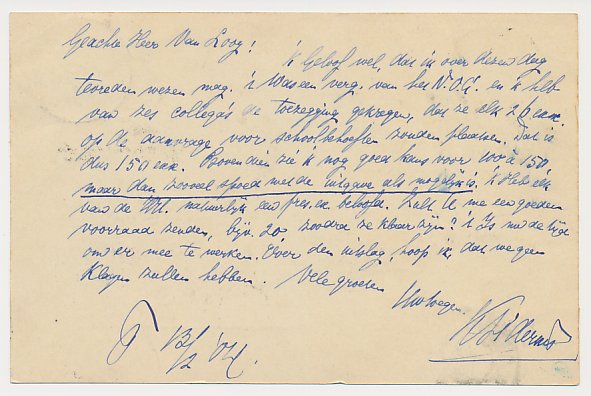 Geachte Heer Van Looy!
'k Geloof wel, dat ik over dezen dag
tevreden wezen mag. 't Was een verg. van het N.O.G. en ik heb
van zes collega's de toezegging gekregen, dat ze elk 26 ex.
op de aanvrage voor schoolbehoeften zouden plaatsen. Dat is
dus 150 ex. Bovendien zie 'k nog goed kans voor 100 à 150
maar dan zooveel spoed met de uitgave als mogelijk is. 'k Heb elk
van de natuurlijk een pres. ex. beloofd. Zult U me een goeden
voorraad zenden, bijv. 20 zoodra ze klaar zijn? 't Is nu de tijd
om er mee te werken. Over den uitslag, hoop ik, dat we geen
klagen zullen hebben. Vele groeten
Uw toegen.
13/2 '04.